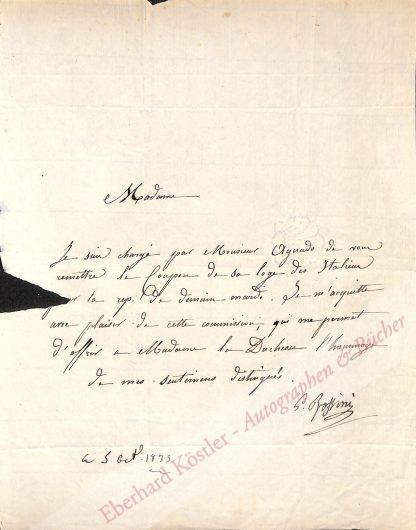 Madame
Je suis chargé par Monsieur Aguado de vous
remettre le Coupon de sa loge des Italiens
pour la rep. de demain mardi. Je m'acquitte
avec plaisir de cette commission, qui me permet
d'offrir a Madame la Duchesse l'hommage
de mes sentimens distingués.
G. Rossini
Ce 5 Oct. 1835
Eberhard Köstler - Autographen & Bücher